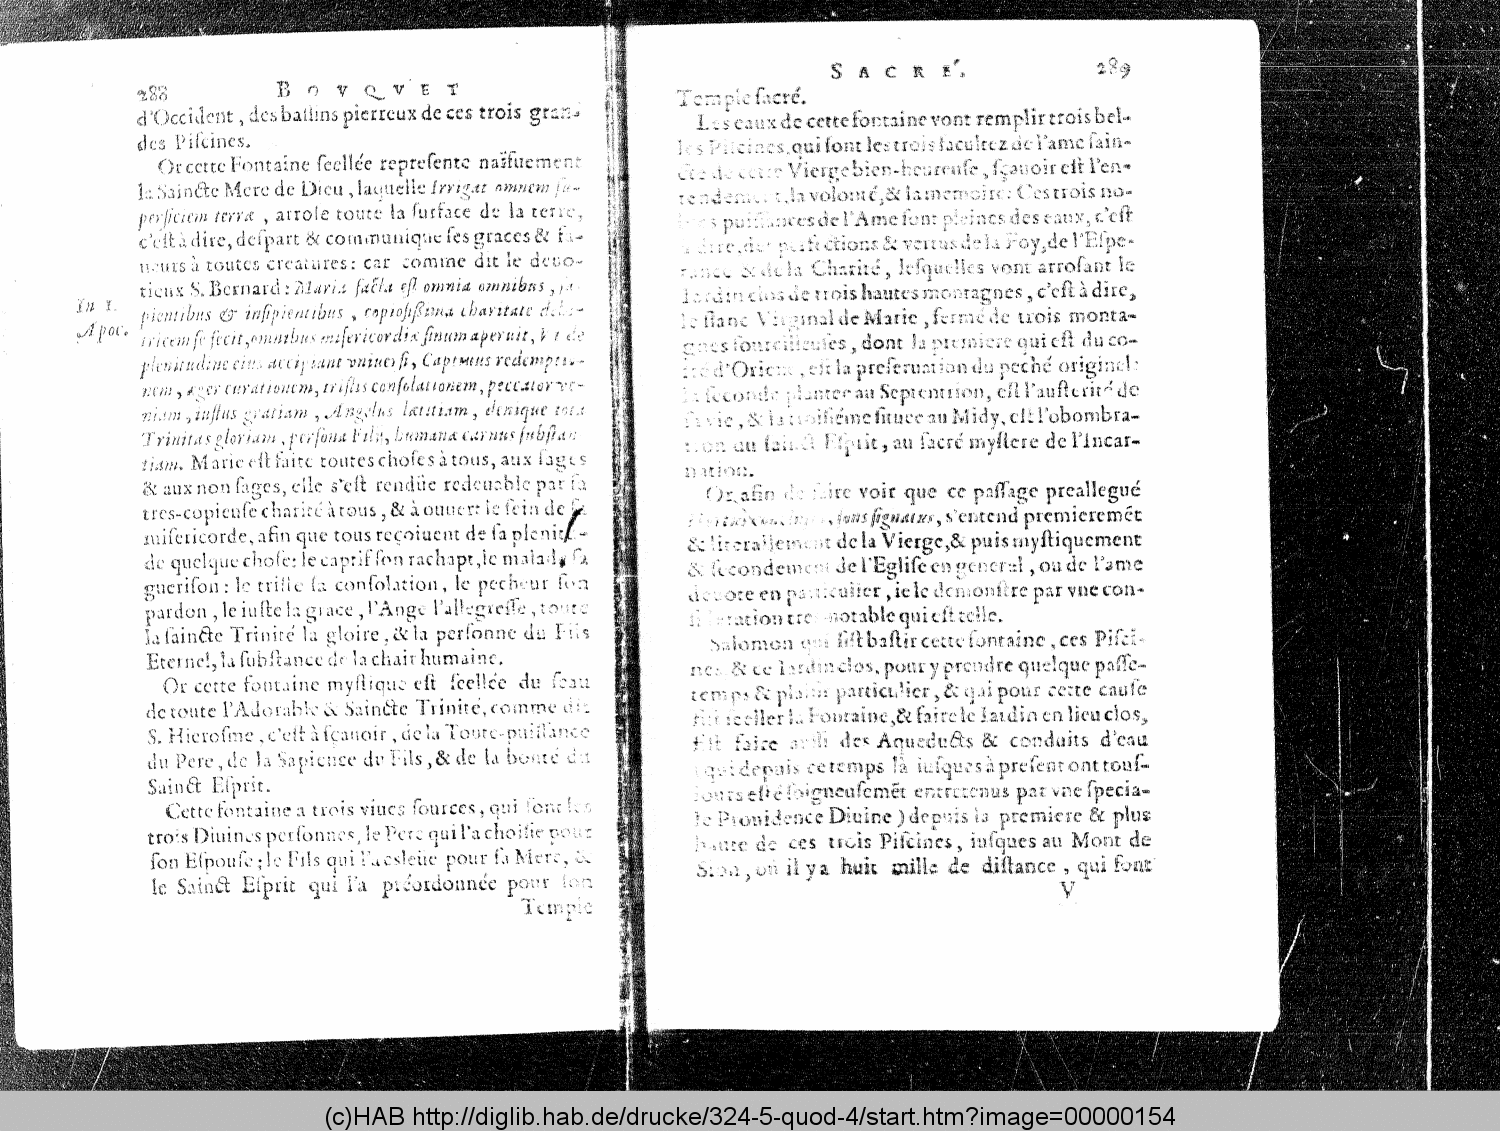 288 BOVQVET
d'Occident, des bassins pierreux de ces trois gran-
des Piscines.
Or cette Fontaine seellée represente naïfuement
la Saincte Mere de Dieu, laquelle Irrigat omnem su-
perficiem terræ, arrose toute la surface de la terre,
c'est à dire, despart & communique ses graces & fa-
ueurs à toutes creatures: car comme dit le deuo-
tieux S. Bernard: Maria facta est omnia omnibus, sa-
In 1.
Apoc.
pientibus & insipientibus, copiosissima charitate debi-
tricem se fecit, omnibus misericordiæ sinum aperuit, vt de
plenitudine eius accipiant vniuersi, Captiuus redemptio-
nem, æger curationem, tristis consolationem, peccator ve-
niam, iustus gratiam, Angelus lætitiam, denique tota
Trinitas gloriam, persona Filij, humanæ carnis substan-
tiam. Marie est faite toutes choses à tous, aux sages
& aux non sages, elle s'est rendüe redeuable par sa
tres-copieuse charité à tous, & à ouuert le sein de sa
misericorde, afin que tous reçoiuent de sa plenitu-
de quelque chose: le captif son rachapt, le malade sa
guerison: le triste sa consolation, le pecheur son
pardon, le iuste la grace, l'Ange l'allegresse, toute
la saincte Trinité la gloire, & la personne du Fils
Eternel, la substance de la chair humaine.
Or cette fontaine mystique est seellée du seau
de toute l'Adorable & Saincte Trinité, comme dit
S. Hierosme, c'est à sçauoir, de la Toute-puissance
du Pere, de la Sapience du Fils, & de la bonté du
Sainct Esprit.
Cette fontaine a trois viues sources, qui sont les
trois Diuines personnes, le Pere qui l'a choisie pour
son Espouse; le Fils qui l'a esleüe pour sa Mere, &
le Sainct Esprit qui l'a préordonnée pour son
Temple
SACRÉ. 289
Temple sacré.
Les eaux de cette fontaine vont remplir trois bel-
les Piscines, qui sont les trois facultez de l'ame sain-
cte de cette Vierge bien-heureuse, sçauoir est l'en-
tendement, la volonté, & la memoire: Ces trois no-
bles puissances de l'Ame sont pleines des eaux, c'est
à dire, des perfections & vertus de la Foy, de l'Espe-
rance & de la Charité, lesquelles vont arrosant le
Iardin clos de trois hautes montagnes, c'est à dire,
le flanc Virginal de Marie, fermé de trois monta-
gnes sourcilleuses, dont la premiere qui est du co-
té d'Orient, est la preseruation du peché originel:
la seconde plantee au Septentrion, est l'austerité de
sa vie, & la troisiéme située au Midy, est l'obombra-
tion du sainct Esprit, au sacré mystere de l'Incar-
nation.
Or afin de faire voir que ce passage preallegué
Hortus conclusus, fons signatus, s'entend premieremẽt
& literallement de la Vierge, & puis mystiquement
& secondement de l'Eglise en general, ou de l'ame
deuote en particulier, ie le demonstre par vne con-
sideration tres-notable qui est telle.
Salomon qui fist bastir cette fontaine, ces Pisci-
nes & ce Iardin clos, pour y prendre quelque passe-
temps & plaisir particulier, & qui pour cette cause
fit seeller la Fontaine, & faire le Iardin en lieu clos,
Fist faire aussi des Aqueducts & conduits d'eau
(qui depuis ce temps là iusques à present ont tous-
iours esté soigneusemẽt entretenus par vne specia-
le Prouidence Diuine) depuis la premiere & plus
haute de ces trois Piscines, iusques au Mont de
Sion, où il y a huit mille de distance, qui font
V
(c)HAB http://diglib.hab.de/drucke/324-5-quod-4/start.htm?image=00000154